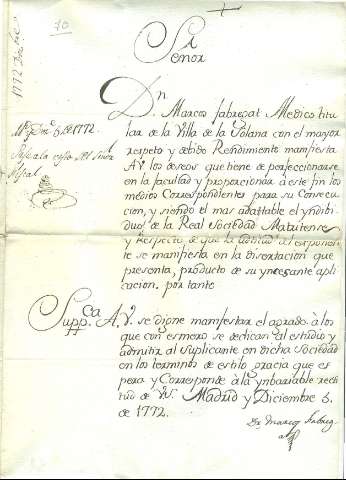 1772 Dic.e
70
Señor
Dn. Marcos Fabregat Medico titu
lar de la Villa de la Solana con el mayor
respeto y debido Rendimiento manifiesta
A V. los deseos que tiene de perfeccionarse
en la facultad y proporcionar à este fin los
medios Correspondientes para su Consecu
cion, y siendo el mas adattable el yndibi
duo de la Real Sociedad Matritense
y respecto de que la aptitud del exponen
te se manifiesta en la disertacion que
presenta, producto de su yncesante apli
cacion. por tanto
Md. y Dice. 5. de 1772.
Pase a la del Señor
Suppca. A. V. se digne manifestar el agrado à los
que con esmero se dedican al estudio y
admitir al suplicante en dicha Sociedad
en los terminos de estilo, gracia que es
pera y Corresponde à la ynbariable recti
tud de V. Madrid y Diciembre 5.
de 1772.
Dr. Marcos Fabreg
at